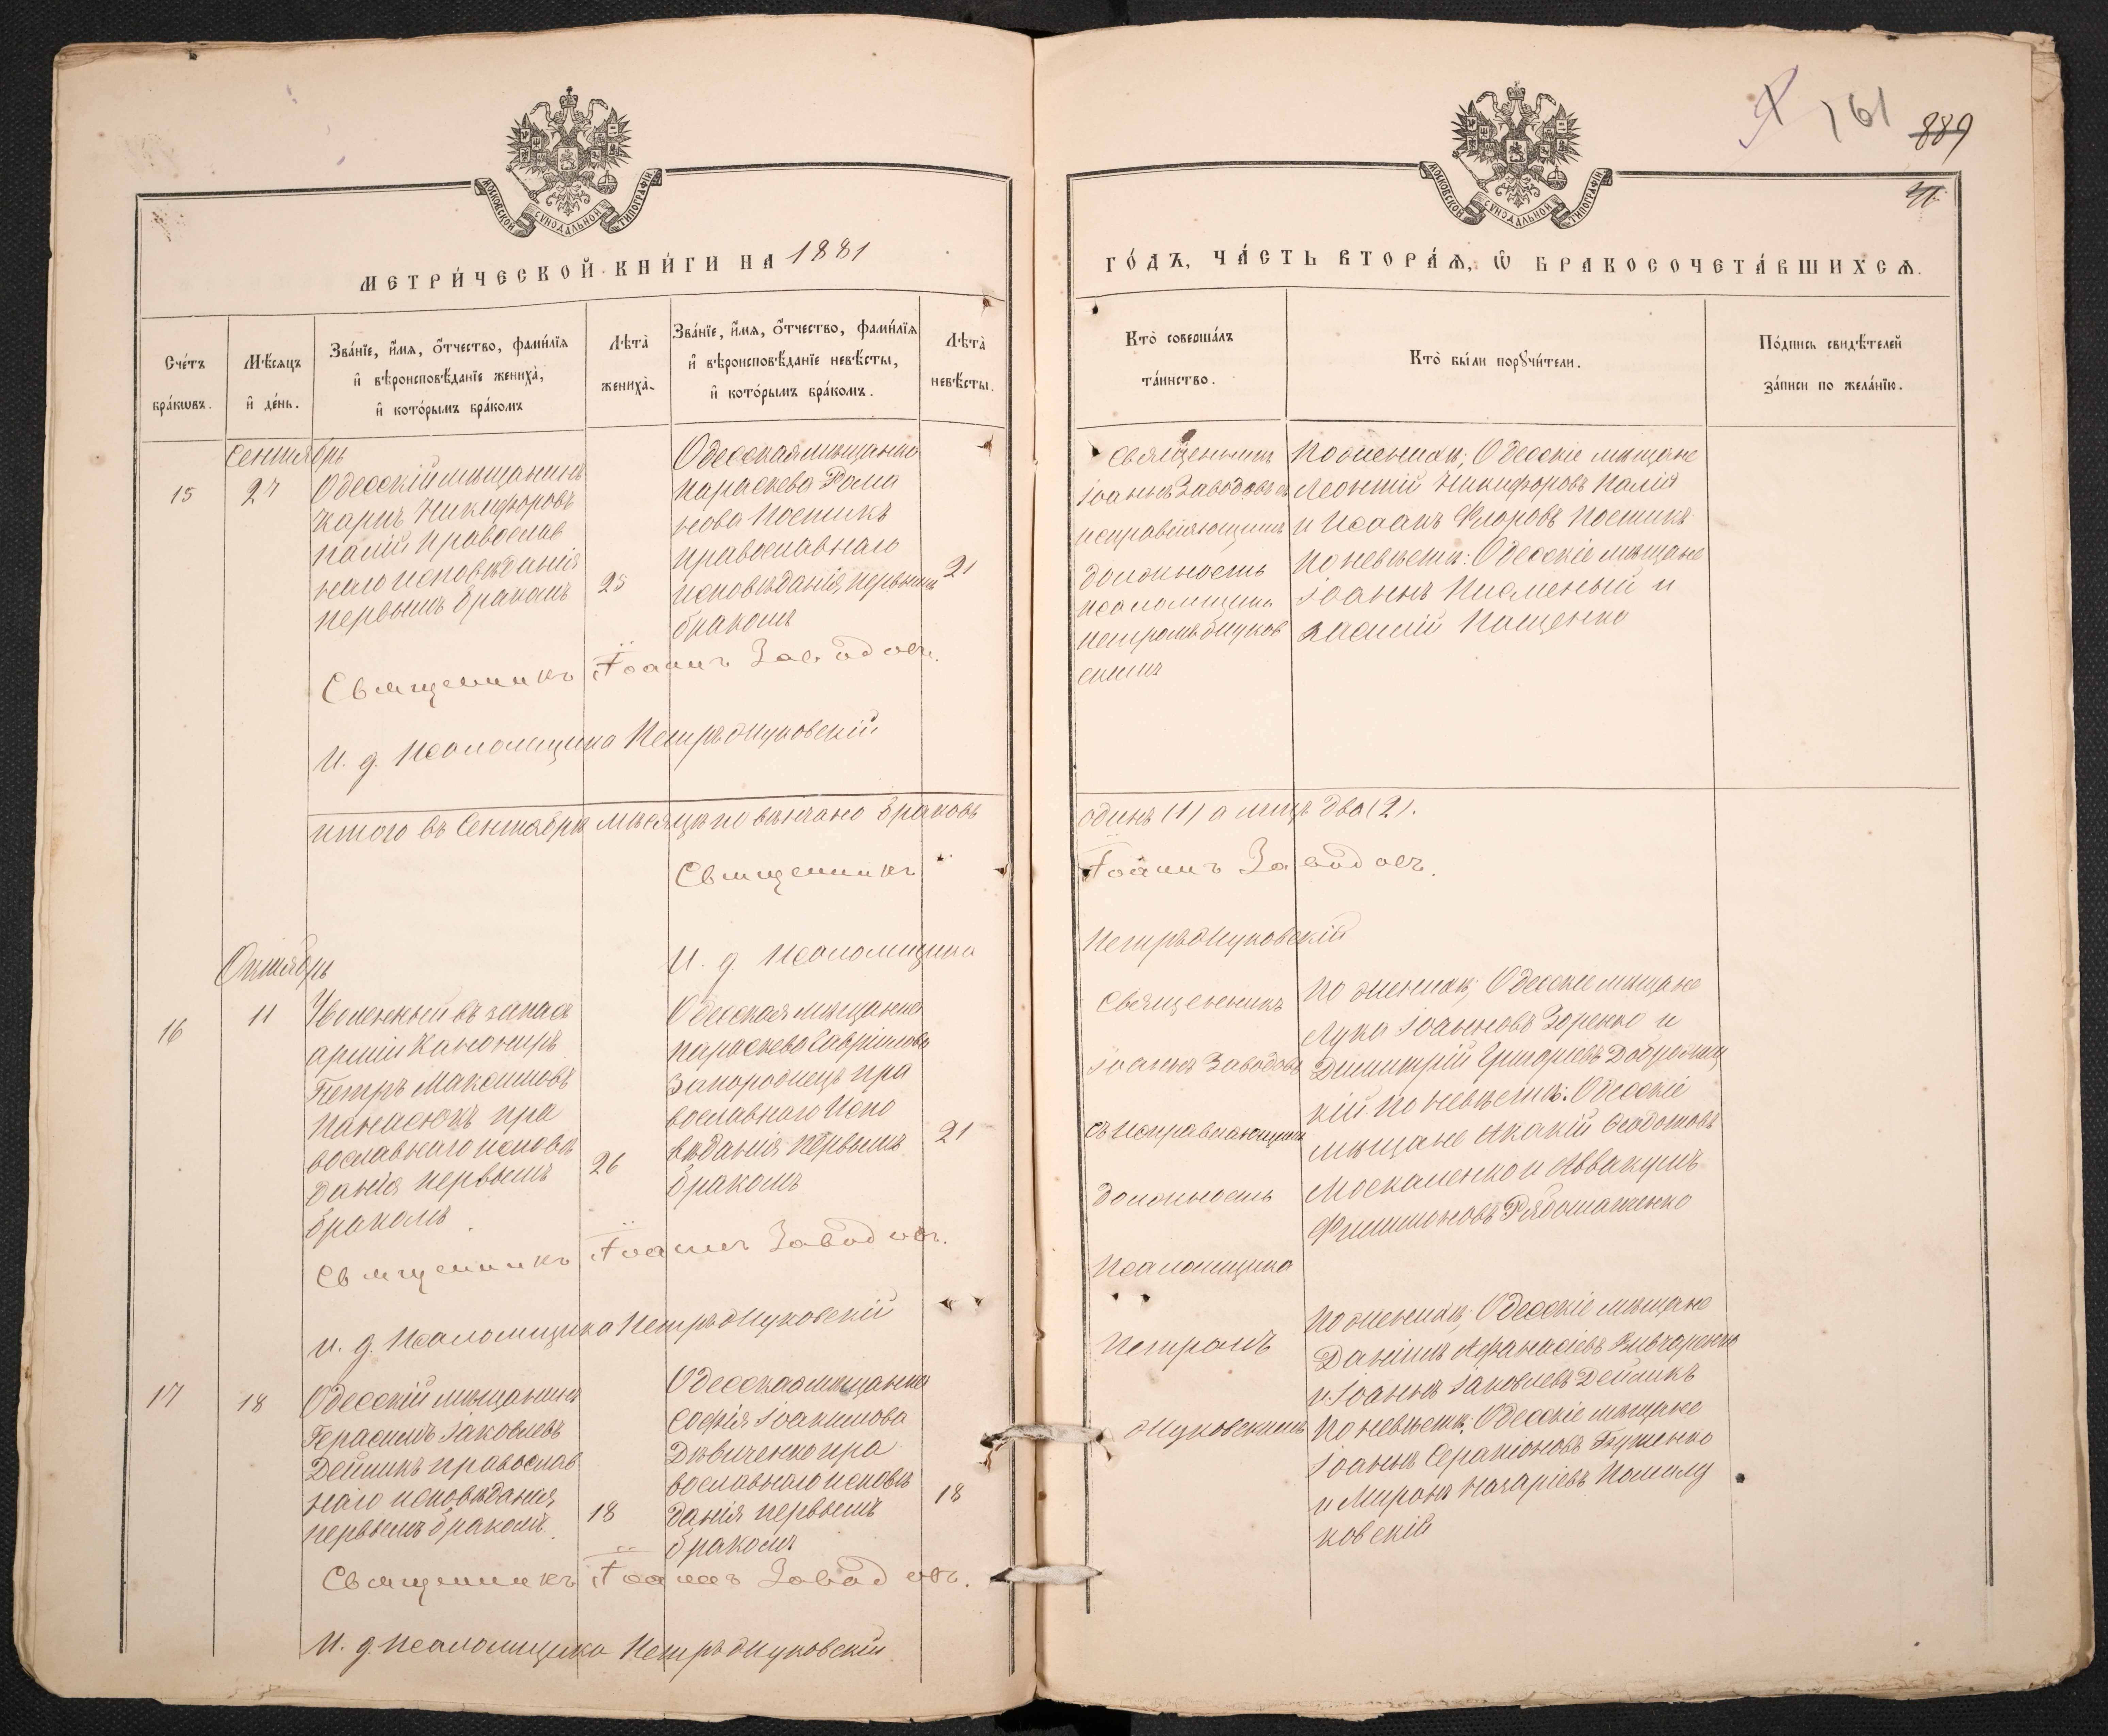 161
889
МОСКОВСКОЙ СѴНОДАЛЬНОЙ ТИПОГРАФІИ
МОСКОВСКОЙ СѴНОДАЛЬНОЙ ТИПОГРАФІИ
МЕТРИ́ЧЕСКОЙ КНИ́ГИ НА 1881
ГО́ДЪ, ЧА́СТЬ ВТОРА́Ѧ, Ѡ БРАКОСОЧЕТА́ВШИХСѦ.
Сче́тъ
бра́кѡвъ.
Мѣ́сѧцъ
и҆ де́нь.
Зва́нїе, и҆́мѧ, ѻ҆́тчество, фами́лїѧ
и҆ вѣроисповѣ́данїе жениха̀,
и҆ кото́рымъ бра́комъ
Лѣ́та̀
жениха̀.
Зва́нїе, и҆́мѧ, ѻ҆́тчество, фами́лїѧ
и҆ вѣроисповѣ́данїе невѣ́сты,
и҆ кото́рымъ бра́комъ.
Лѣ́та̀
невѣ́сты.
Кто̀ соверша́лъ
та́инство.
Кто̀ бы́ли порꙋчи́тели.
По́дпись свидѣ́телей
за́писи по жела́нїю.
Сентябрь
15
27
Одесскій мѣщанинъ
Карпъ Никифоровъ
Палій православ
наго исповѣданія
первымъ бракомъ
25
Одесская мѣщанка
Параскева Рома
нова Постикъ
православнаго
исповѣданія, первымъ
бракомъ
21
Священникъ
Іоаннъ Заводовъ съ
исправляющимъ
должность
псаломщика
Петромъ Жуков
скимъ
По женихѣ; Одесскіе мѣщане
Леонтій Никифоровъ Палій
и Исаакъ Флоровъ Постикъ
По невѣстѣ: Одесскіе мѣщане
Іоаннъ Писменый и
Василій Пащенко
Священникъ Іоаннъ Заводовъ.
И. д. Псаломщика Петръ Жуковскій
Итого въ Сентябрѣ мѣсяцѣ повѣнчано браковъ
одинъ (1) а лицъ два (2).
Священникъ
Іоаннъ Заводовъ.
И. д. Псаломщика
Петръ Жуковскій
Октябрь
16
11
Уволенный въ запасъ
арміи Канониръ
Петръ Максимовъ
Панасюкъ пра
вославнаго исповѣ
данія первымъ
бракомъ
26
Одесская мѣщанка
Параскева Гавріилова
Запорожецъ пра
вославнаго испо
вѣданія первымъ
бракомъ
21
Священникъ
Іоаннъ Заводовъ
съ исправляющимъ
должность
Псаломщика
Петромъ
Жуковскимъ
По женихѣ; Одесскіе мѣщане
Лука Іоанновъ Зоренко и
Димитрій Григорьевъ
кій по невѣстѣ: Одесскіе
мѣщане Акакій Ѳеодотовъ
Москаленко и Аввакумъ
Филимоновъ
Священникъ Іоаннъ Заводовъ.
И. д. Псаломщика Петръ Жуковскій
17
18
Одесскій мѣщанинъ
Герасимъ Іаковлевъ
Дейникъ православ
наго исповѣданія
первымъ бракомъ.
18
Одесская мѣщанка
Софія Іоакимова
Дѣвиченко пра
вославнаго исповѣ
данія первымъ
бракомъ
18
По женихѣ; Одесскіе мѣщане
Даніилъ Аѳанасіевъ Вивчаренко
и Іоаннъ Іаковлевъ Дейникъ
По невѣстѣ; Одесскіе мѣщане
Іоаннъ Серапіоновъ
и Миронъ Назаріевъ
ковскій
Священникъ Іоаннъ Заводовъ.
И. д. Псаломщика Петръ Жуковскій